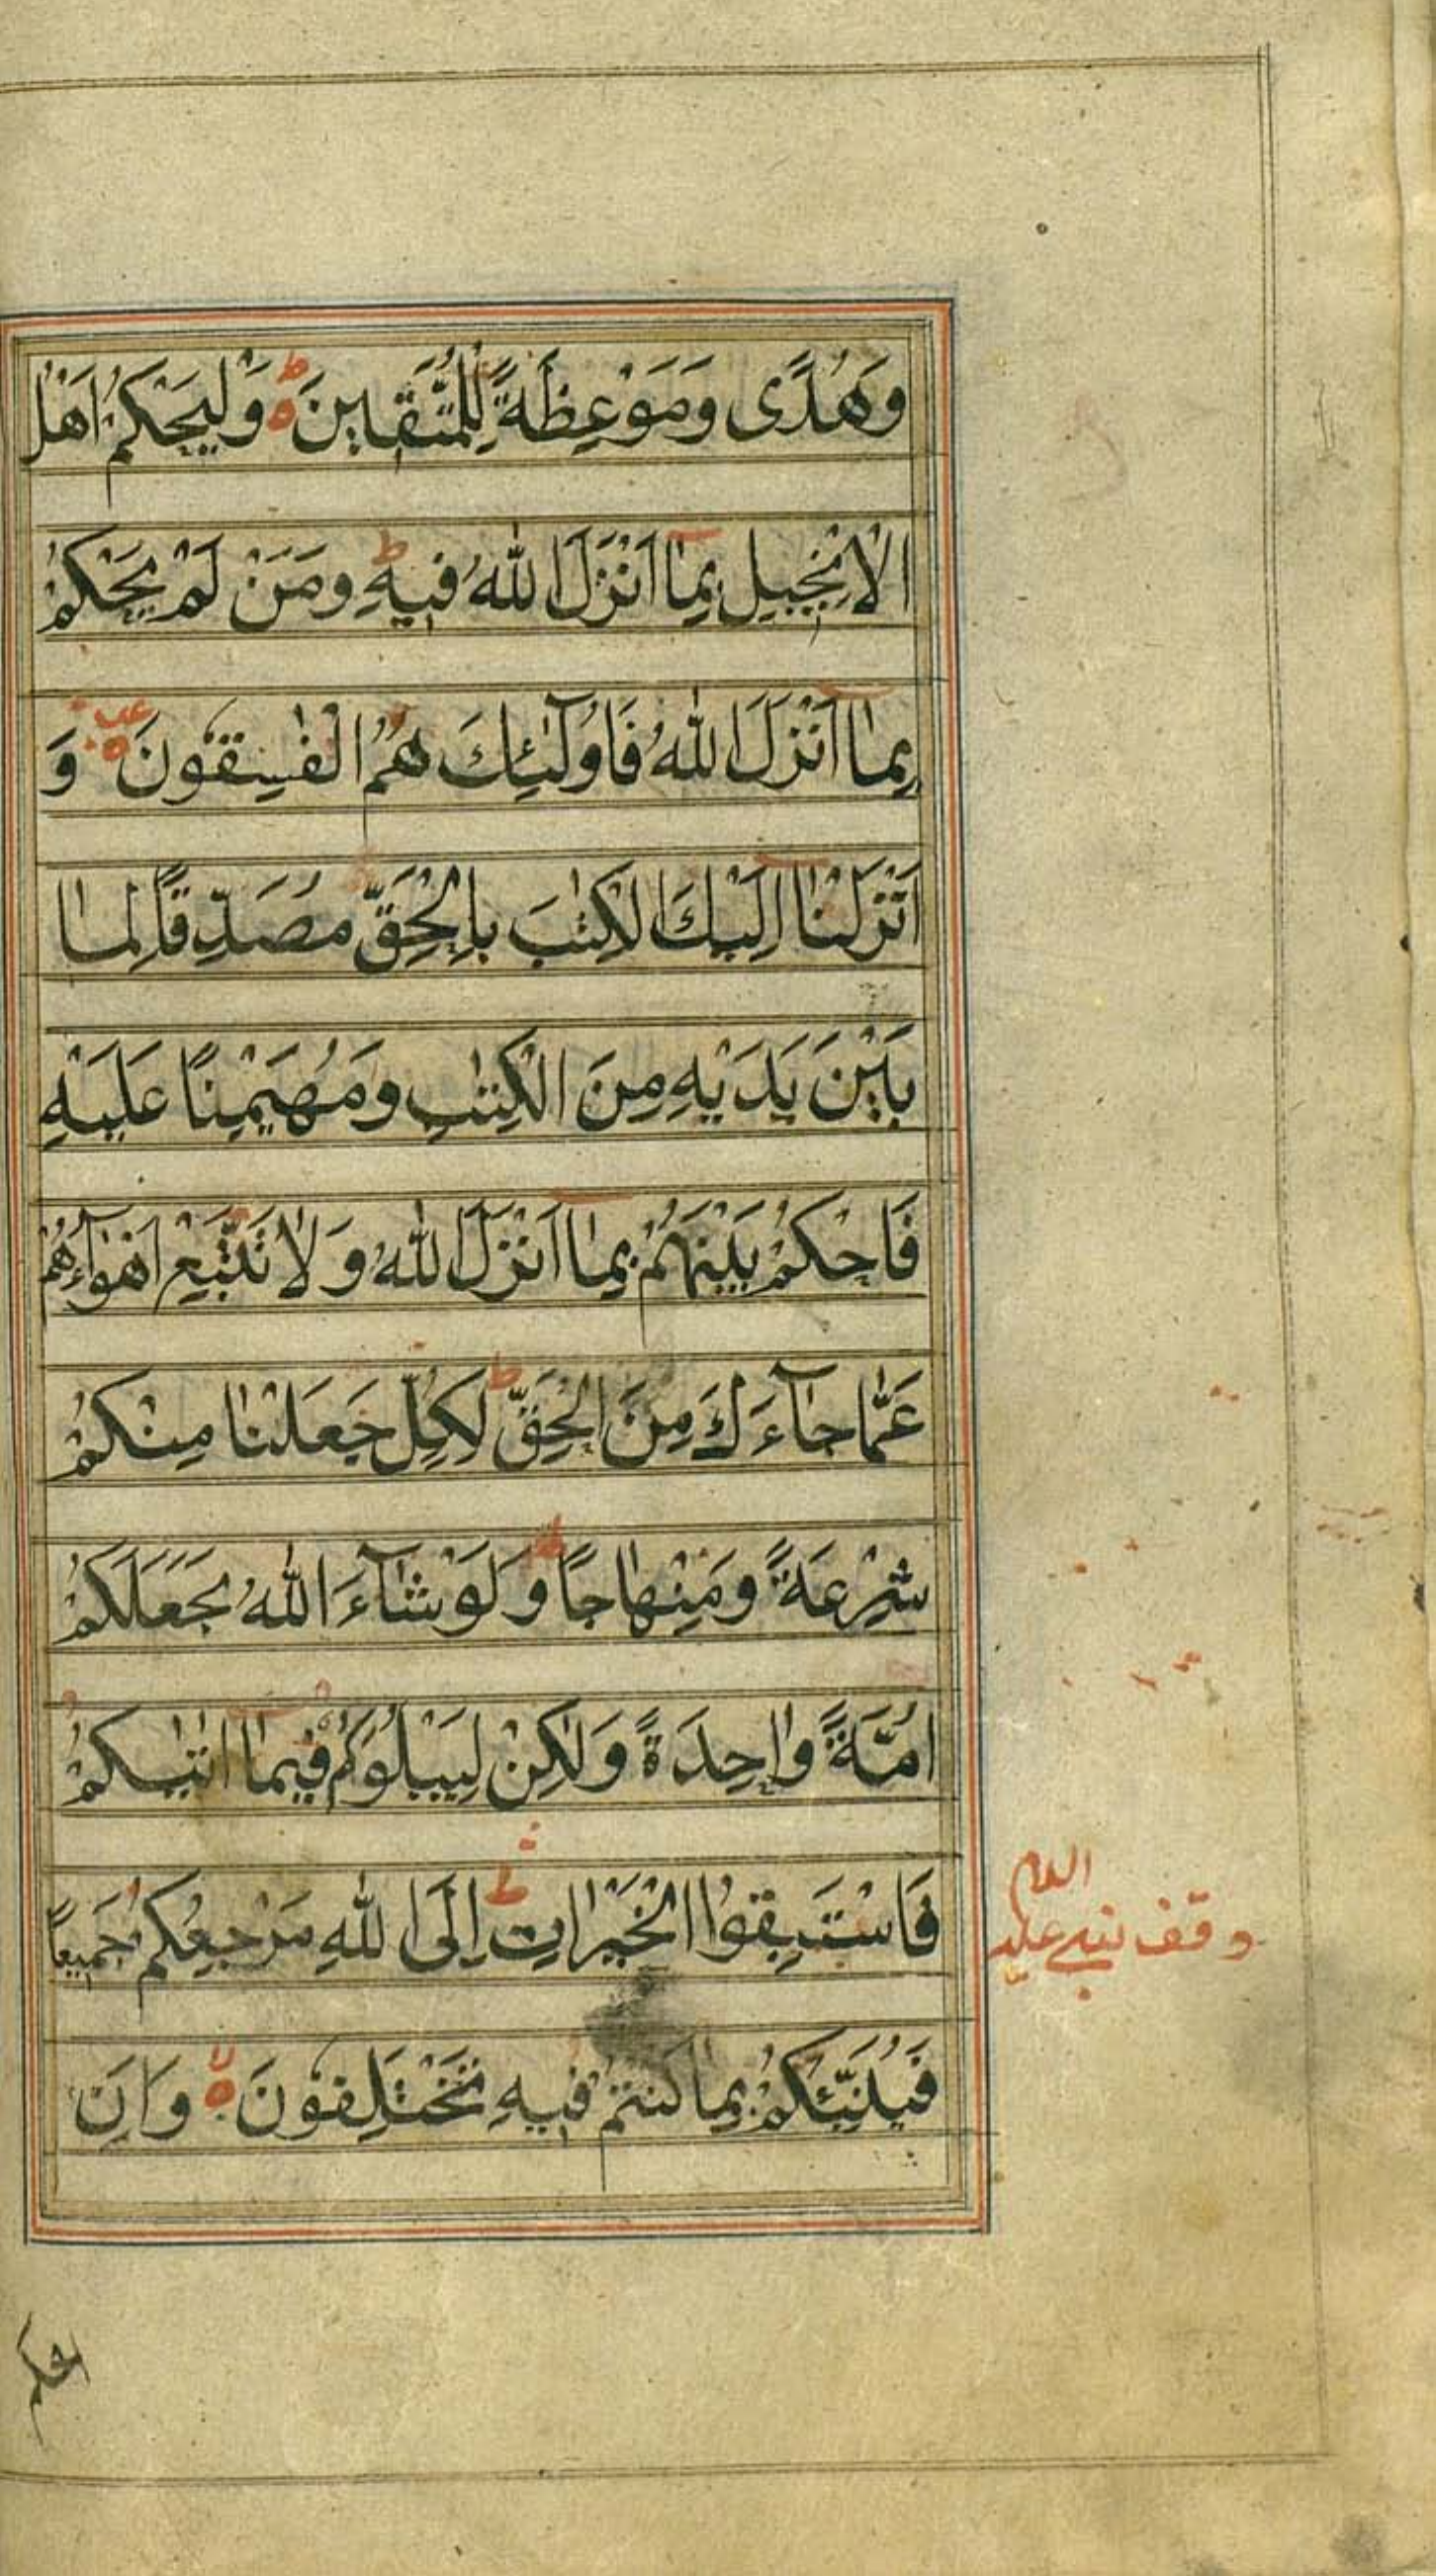 وَهُدًى وَمَوْعِظَةً لِلْمُتَّقِينَ ۵ ط وَلْيَحْكُمْ اَهْلُ
الْاِنْجِيلِ بِمَا اَنْزَلَ اللّٰهُ فِيهِ ط وَمَنْ لَمْ يَحْكُمْ
بِمَا اَنْزَلَ اللّٰهُ فَاُولٰٓئِكَ هُمُ الْفٰسِقُونَ ۵ وَ
اَنْزَلْنَا اِلَيْكَ الْكِتٰبَ بِالْحَقِّ مُصَدِّقًا لِمَا
بَيْنَ يَدَيْهِ مِنَ الْكِتٰبِ وَمُهَيْمِنًا عَلَيْهِ
فَاحْكُمْ بَيْنَهُمْ بِمَا اَنْزَلَ اللّٰهُ وَلَا تَتَّبِعْ اَهْوَآءَهُمْ
عَمَّا جَآءَكَ مِنَ الْحَقِّ ط لِكُلٍّ جَعَلْنَا مِنْكُمْ
شِرْعَةً وَمِنْهَاجًا وَلَوْ شَآءَ اللّٰهُ لَجَعَلَكُمْ
اُمَّةً وَاحِدَةً وَلٰكِنْ لِيَبْلُوَكُمْ فِيمَا اٰتٰىكُمْ
فَاسْتَبِقُوا الْخَيْرَاتِ ط اِلَى اللّٰهِ مَرْجِعُكُمْ جَمِيعًا
وقف نبي عليه السلام
فَيُنَبِّئُكُمْ بِمَا كُنْتُمْ فِيهِ تَخْتَلِفُونَ ۵ لا وَاَنِ
احكم